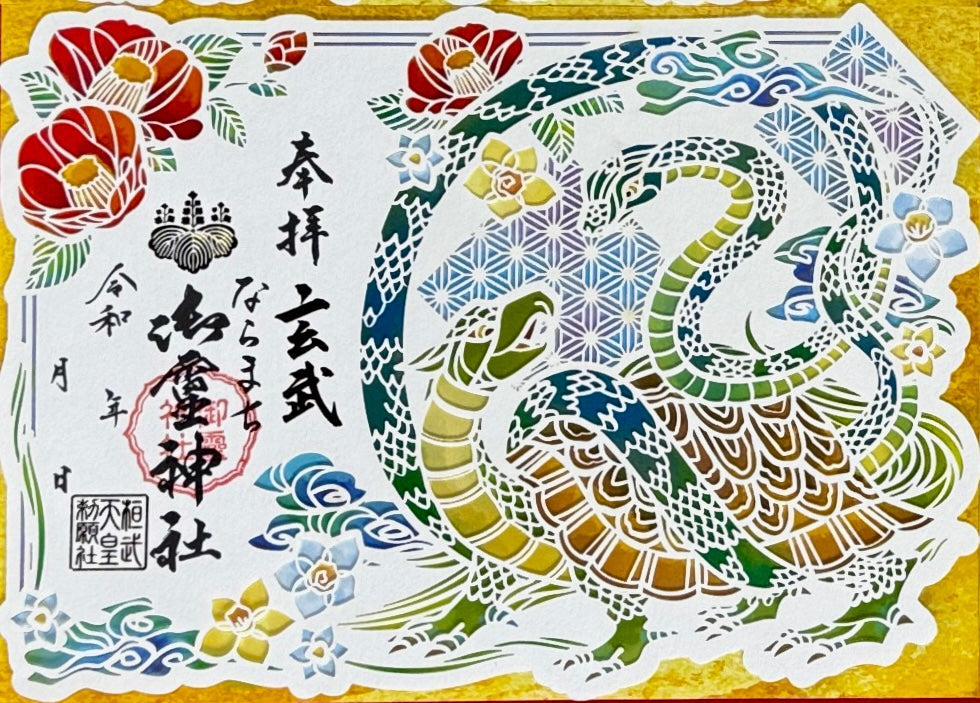 奉拝 玄武
ならまち
御霊神社
御霊
神社
令和 年
月 日
桓武
天皇
勅願社